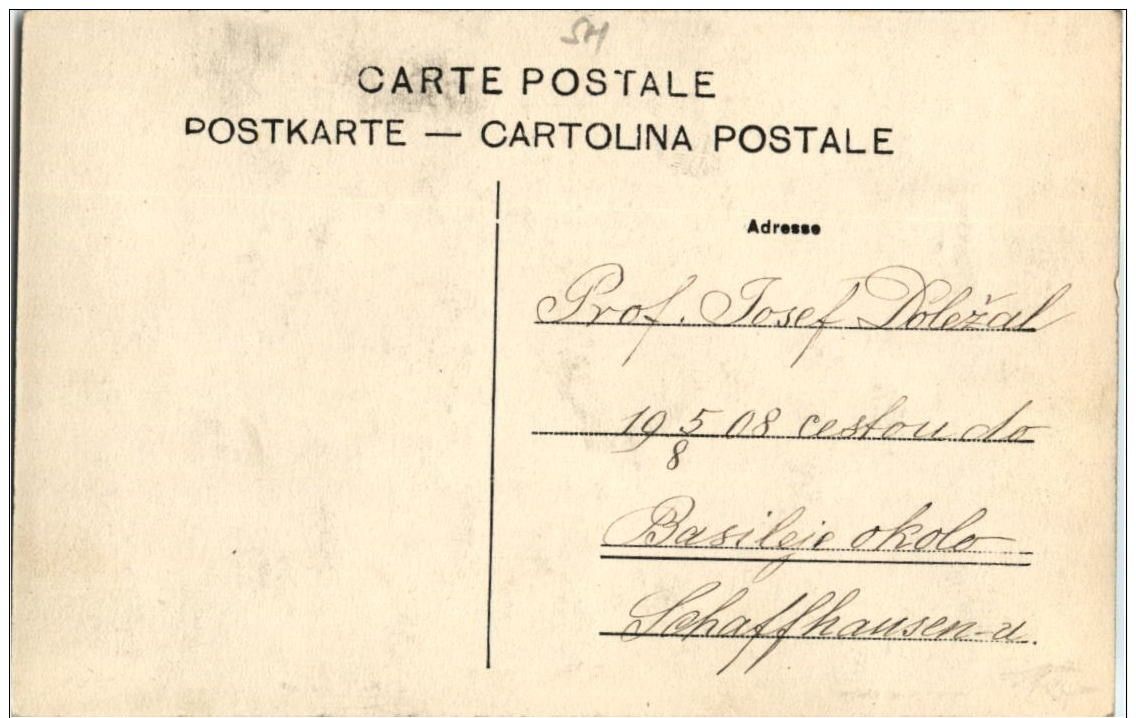 SH
CARTE POSTALE
POSTKARTE — CARTOLINA POSTALE
Adresse
Prof. Josef Doležal
19 5/8 08 cestou do
Basileje okolo
Schaffhausen-u.